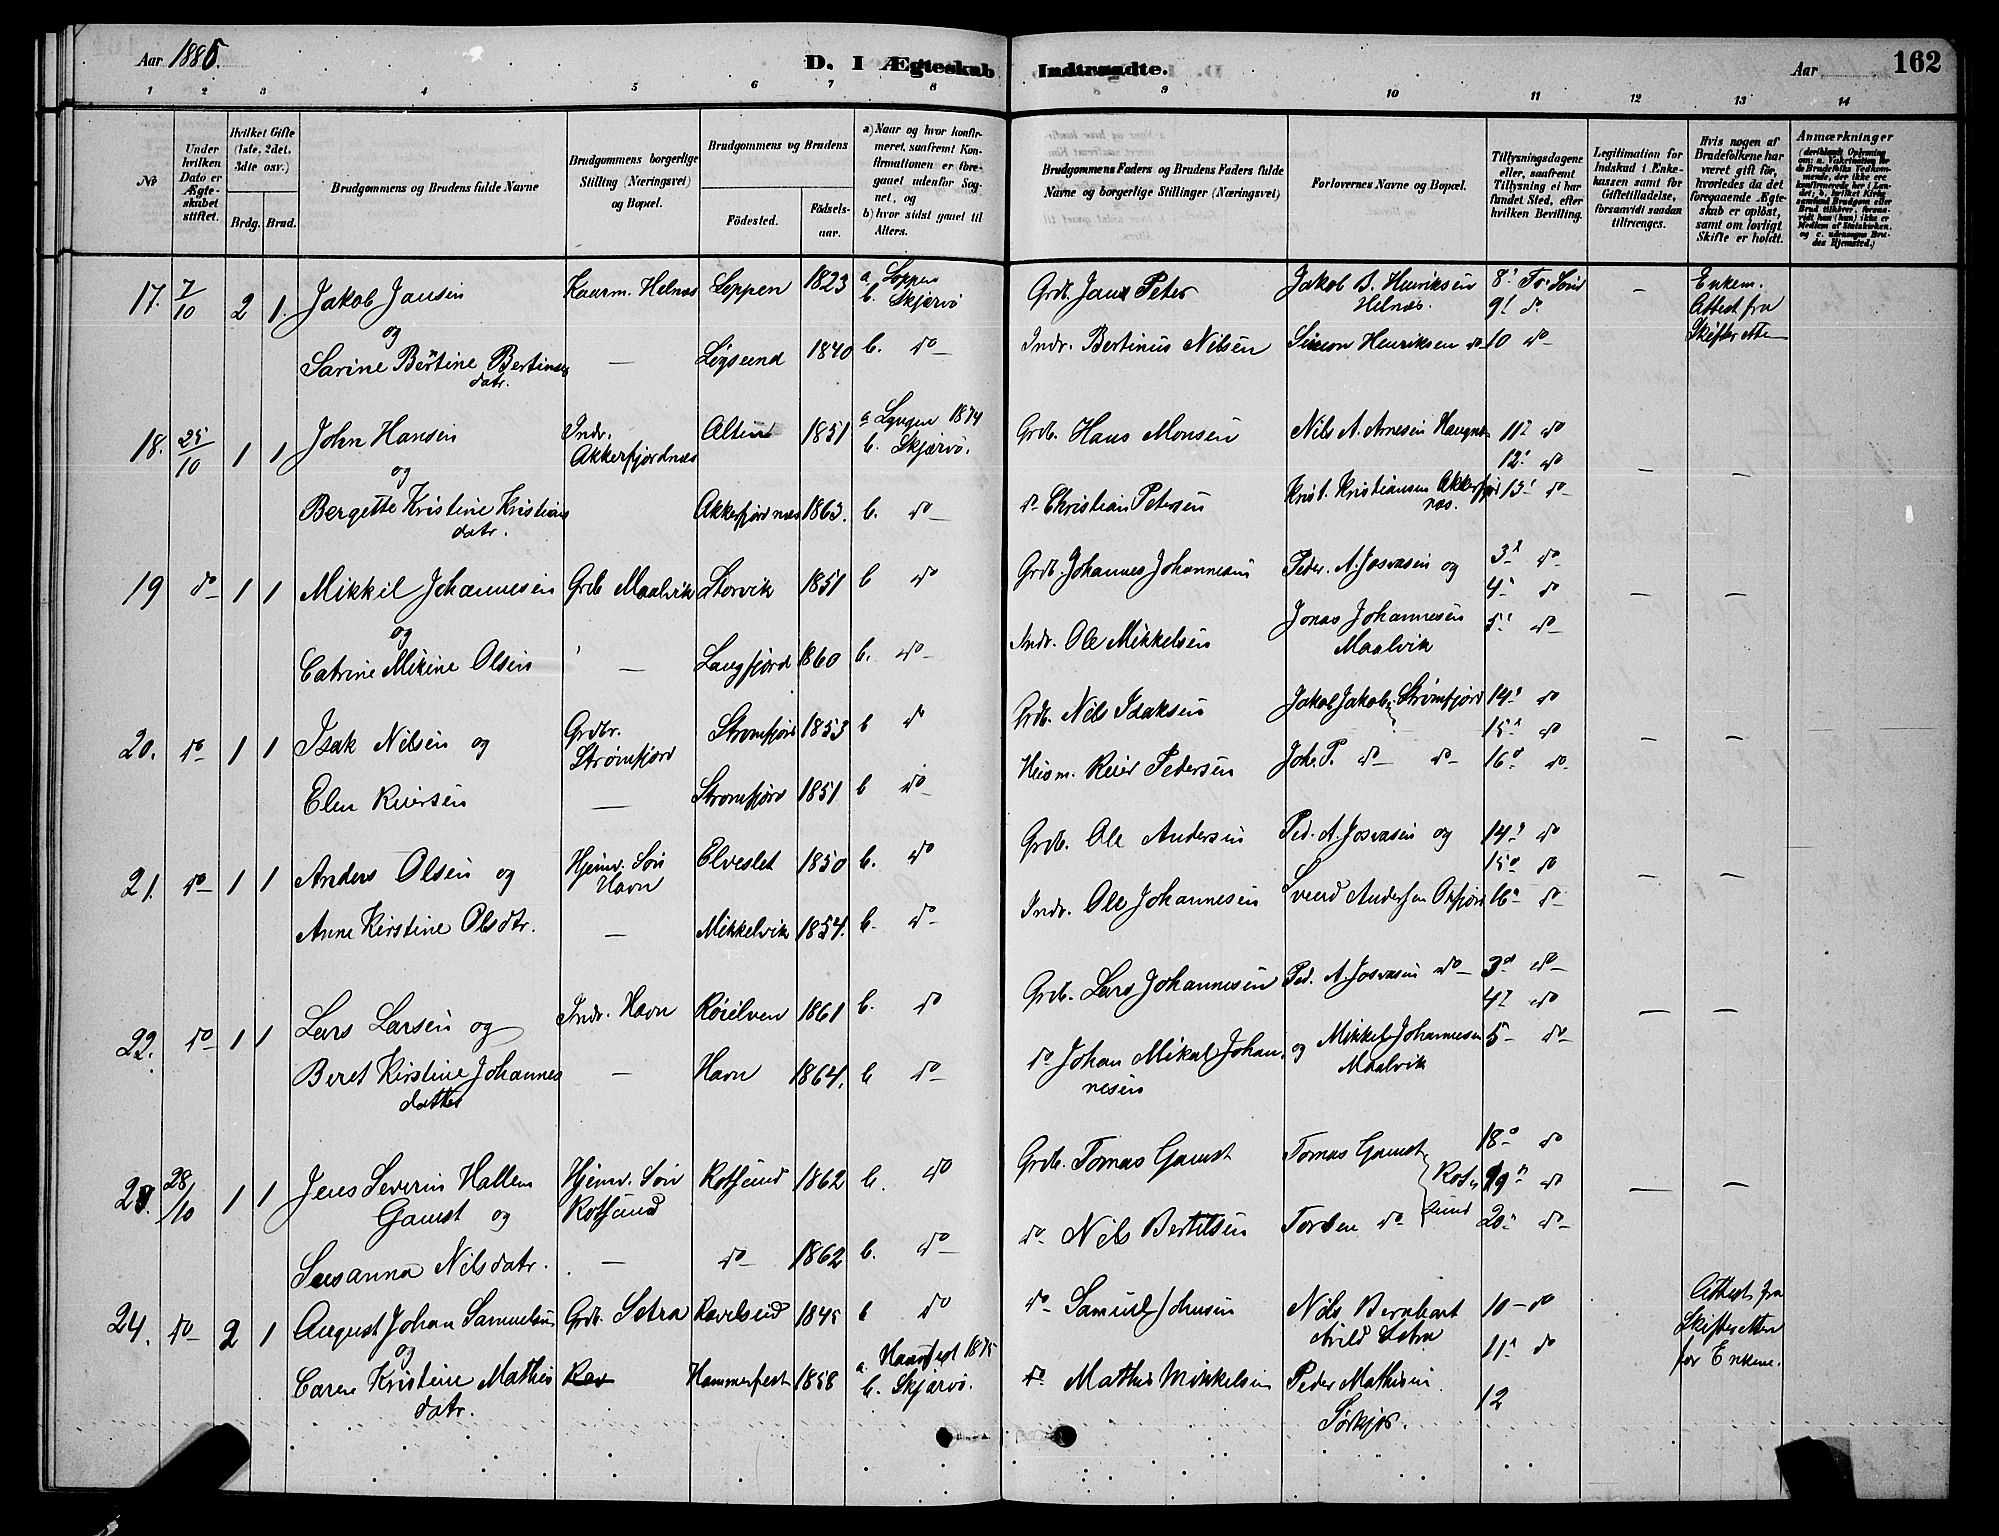 Aar 1885.
D. I Ægteskab Indtraadte.
Aar
162
1 2 3 4 5 6 7 8 9 10 11 12 13 14
No
Under hvilken Dato er Ægteskabet stiftet.
Hvilket Gifte (1ste, 2det, 3die osv.)
Brdg. Brud.
Brudgommens og Brudens fulde Navne
Brudgommens borgerlige Stilling (Næringsvei) og Bopæl.
Brudgommens og Brudens
Fødested.
Fødselsaar.
a) Naar og hvor konfirmeret, saafremt Konfirmationen er foregaaet udenfor Sognet, og
b) hvor sidst gaaet til Alters.
Brudgommens Faders og Brudens Faders fulde Navne og borgerlige Stillinger (Næringsvei)
Forlovernes Navne og Bopæl.
Tillysningsdagene eller, saafremt Tillysning ei har fundet Sted, efter hvilken Bevilling.
Legitimation for Indskud i Enkekassen samt for Giftetilladelse, forsaavidt saadan tiltrænges.
Hvis nogen af Brudefolkene har været gift før, hvorledes da det foregaaende Ægteskab er opløst, samt om lovligt Skifte er holdt.
Anmærkninger
17. 7/10 2 1. Jakob Jansen Kaarm. Helnæs Loppen 1823 a Loppen b. Skjærvø Grdb. Jans Peter Jakob B. Henriksen Helnæs 8' Tr. Sønd 9' do – Enkem. Attest fra Skifteretten
og
Sarine Bertine Bertinus datr. — Løgsund 1840 b. do Indr. Bertinus Nilsen Simon Henriksen do 10 do
18. 25/10 1 1 John Hansen Indr. Akkerfjordnæs Alten 1851 a Lyngen 1874 b. Skjærvø. Grdb. Hans Monsen Nils A. Arnesen 11 do 12 do – –
og
Bergette Kristine Kristians datr. Akkerfjordnæs 1863. b. do do Christian Petersen Krist. Kristiansen Akkerfjordnæs. 13 do
19 do 1 1 Mikkil Johannesen Grdb Maalvik Storvik 1851 b do Grdb. Johannes Johannesen Peder. A. Josvasen og 3 do 4 do – –
og
Catrine Mikine Olsen — Langfjord 1860 b. do Indr. Ole Mikkelsen Jonas Johannesen Maalvik 5 do
20. do 1 1 Isak Nilsen og Grdbr. Strømfjord Strømfjord 1853 b do Grdb. Nils Isaksen Jakob Jakobs Strømfjord 14 do 15 do – –
Elen Reiersen — Strømfjord 1851 b do Husm. Reier Pedersen Joh. P. do do 16 do
21. do 1 1 Anders Olsen og Hjemv. Søn Havn Elveslet 1850 b. do Grdb. Ole Andersen Ped. A. Josvasen og 14 do 15 do – –
Anne Kirstine Olsdtr. — Mikkelvik 1854. b. do Indr. Ole Johannesen Svend Andersen Oxfjord 16 do
22. do 1 1 Lars Larsen og Indr. Havn Røielven 1861 b. do Grdb. Lars Johannesen Ped. A. Josvasen do 3 do 4 do – –
Beret Kirstine Johannes datter — Havn 1864. b do do Johan Mikal Johannesen og Mikkel Johannesen Maalvik 5 do
23. 28/10 1 1 Jens Severin Hallen Gamst og Hjemv. Søn Rotsund Rotsund 1862 b. do Grdb. Tomas Gamst Tomas Gamst Rotsund 18 do 19 do – –
Susanna Nilsdatr. — do 1862 b. do do Nils Bertelsen Torben do 20 do
24. do 2 1 August Johan Samuelsen Grdb. Setra Ravelseid 1845 b do do Samuel Johnsen Nils Bernhart Setra 10 do 11 do Attest fra Skifteretten for Enkem.
og
Caren Kristine Mathis datr. Hammerfest 1858 a. Hamfest 1875 b. Skjærvø. do Mathis Mikkelsen Peder Mathisen Sørkjos. 12